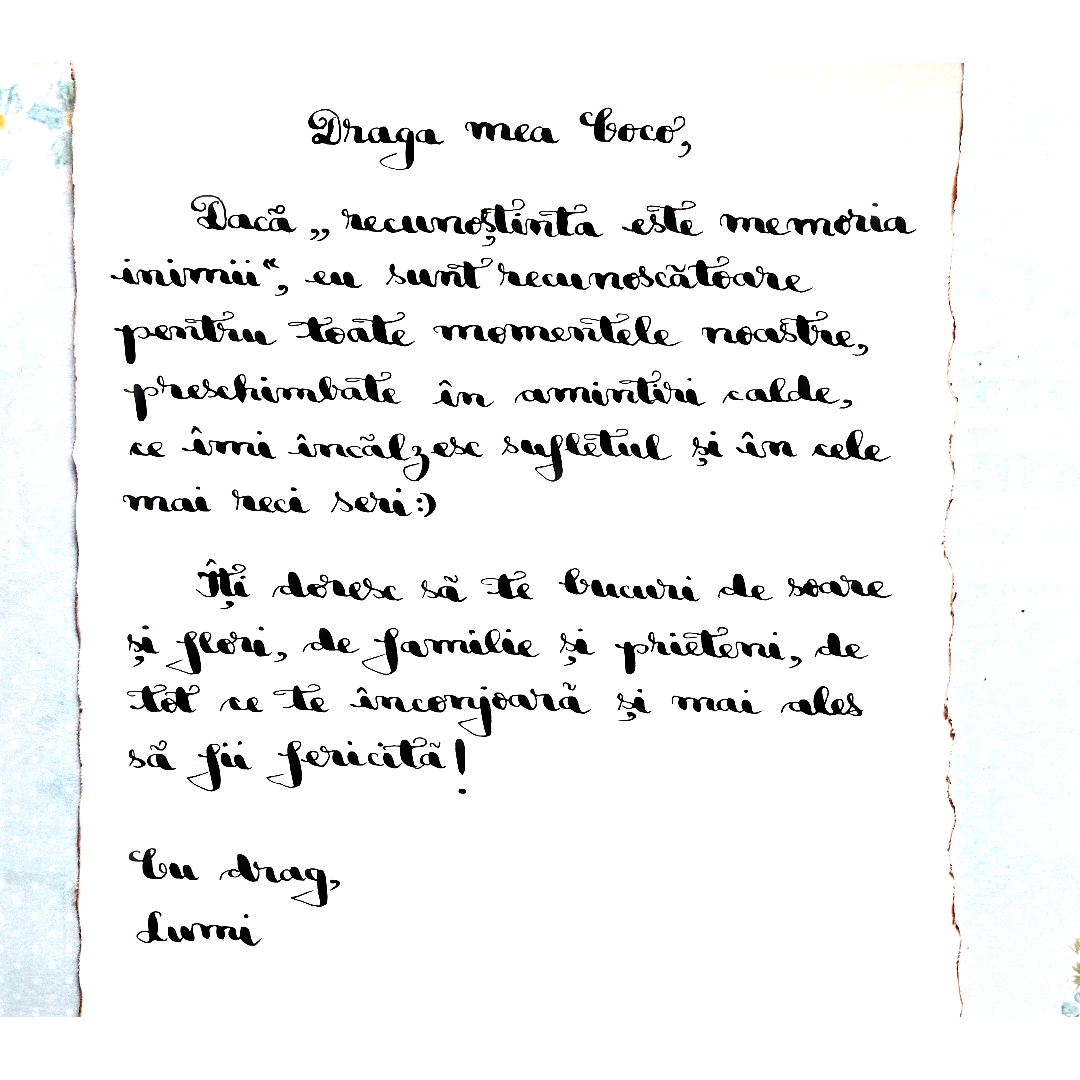 Draga mea Coco,
Dacă „recunoștinta este memoria
inimii“, eu sunt recunoscătoare
pentru toate momentele noastre,
preschimbate în amintiri calde,
ce îmi încălzesc sufletul și în cele
mai reci seri:)
Îți doresc să te bucuri de soare
și flori, de familie și prieteni, de
tot ce te înconjoară și mai ales
să fii fericită!
Cu drag,
Lumi